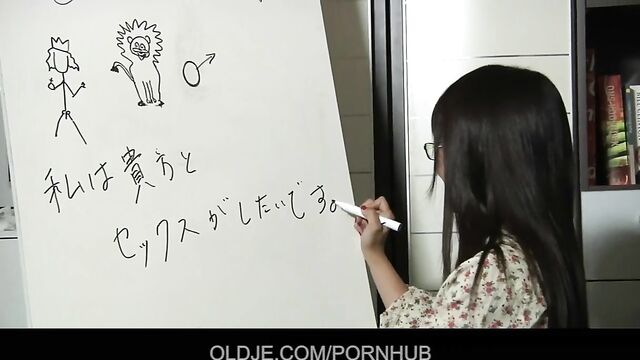 私は貴方と
セックスがしたいです。
OLDJE.COM/PORNHUB